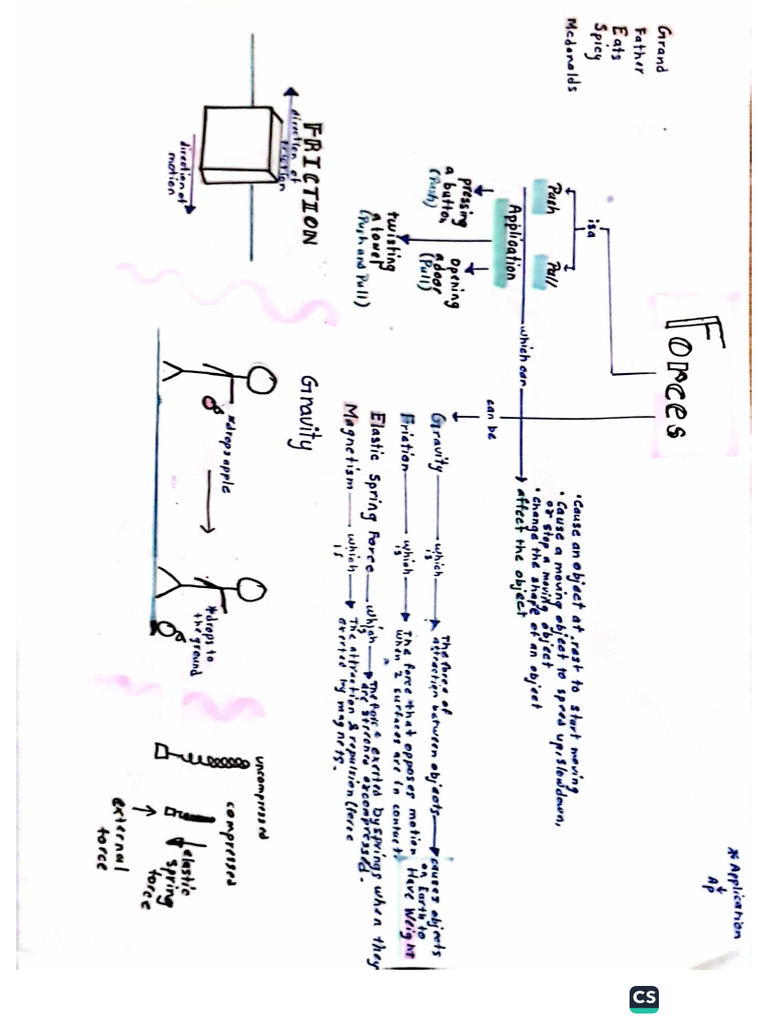 Grand
Father
Eats
Spicy
Mcdonalds
Forces
* Application
Ap
is a
Push
Pull
Application
pressing
a button
(Push)
opening
a door
(Pull)
twisting
a towel
(Push and Pull)
which can
• Cause an object at rest to start moving
• Cause a moving object to speed up, slow down,
or stop a moving object
• change the shape of an object
affect the object
can be
Gravity
which
is
The force of
attraction between objects
causes objects
on Earth to
Have Weight
Friction
which
is
The force that opposes motion
when 2 surfaces are in contact.
Elastic Spring Force
which
is
The force exerted by springs when they
are
or compressed.
Magnetism
which
is
The attraction & repulsion (force
exerted by magnets.
FRICTION
direction of
friction
direction of
motion
Gravity
*drops apple
*drops to
the ground
uncompressed
compressed
elastic
spring
force
external
force
CS